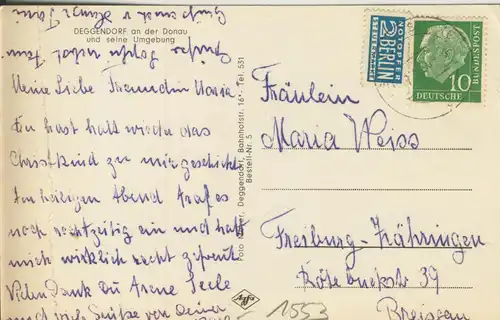 DEGGENDORF an der Donau
und seine Umgebung
Meine Liebe Freundin Maria
Du hast halt wieder das
Christkind zu mir geschickt.
Am heiligen Abend traf es
noch rechtzeitig ein und hat
mich wirklich recht gefreut.
Vielen Dank Du Arme Seele
und viele Grüße von Deiner
Foto Deggendorf, Bahnhofstr. 16¹ · Tel. 531
Bestell-Nr. 5
NOTOPFER
2 BERLIN
STEUERMARKE
DEUTSCHE
BUNDESPOST
10
Fräulein
Maria Weiss
Freiburg-Zähringen
Rötebuckstr 39
Breisgau
Agfa
1553